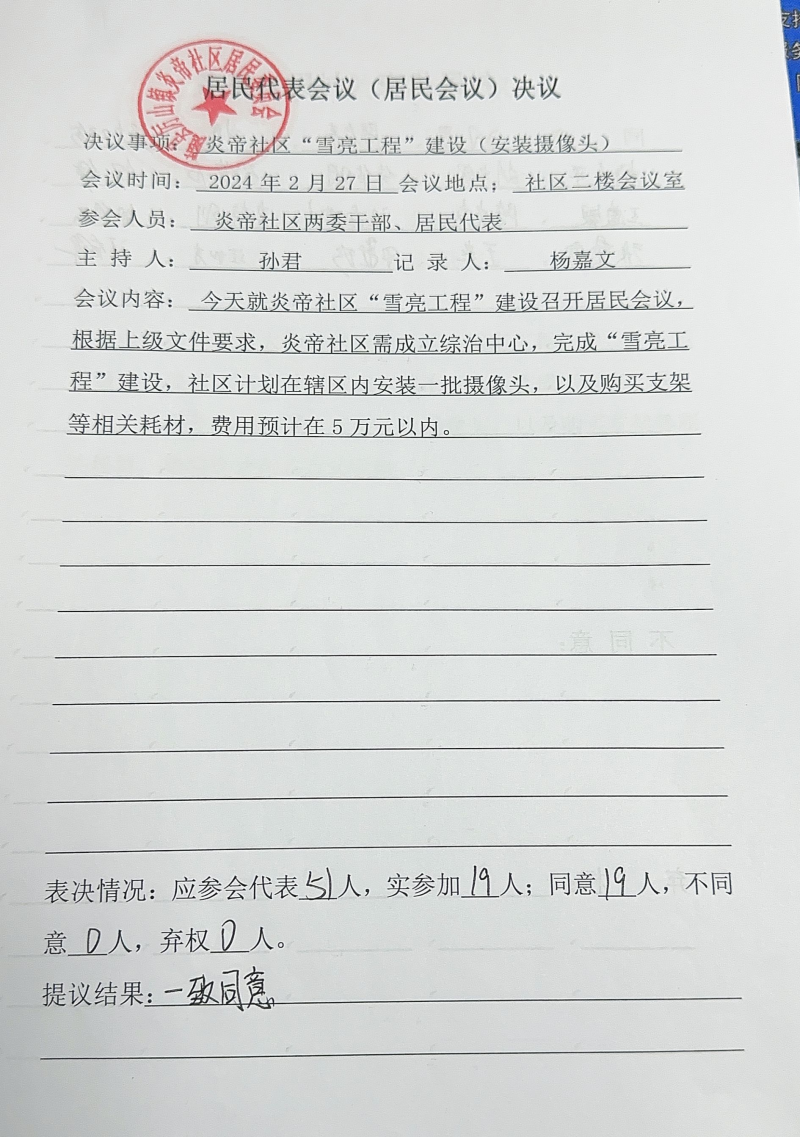 居民代表会议（居民会议）决议
决议事项：炎帝社区“雪亮工程”建设（安装摄像头）
会议时间：2024年2月27日 会议地点；社区二楼会议室
参会人员：炎帝社区两委干部、居民代表
主 持 人：孙君 记 录 人：杨嘉文
会议内容：今天就炎帝社区“雪亮工程”建设召开居民会议，
根据上级文件要求，炎帝社区需成立综治中心，完成“雪亮工
程”建设，社区计划在辖区内安装一批摄像头，以及购买支架
等相关耗材，费用预计在5万元以内。
表决情况：应参会代表51人，实参加19人；同意19人，不同
意0人，弃权0人。
提议结果：一致同意
不同意：